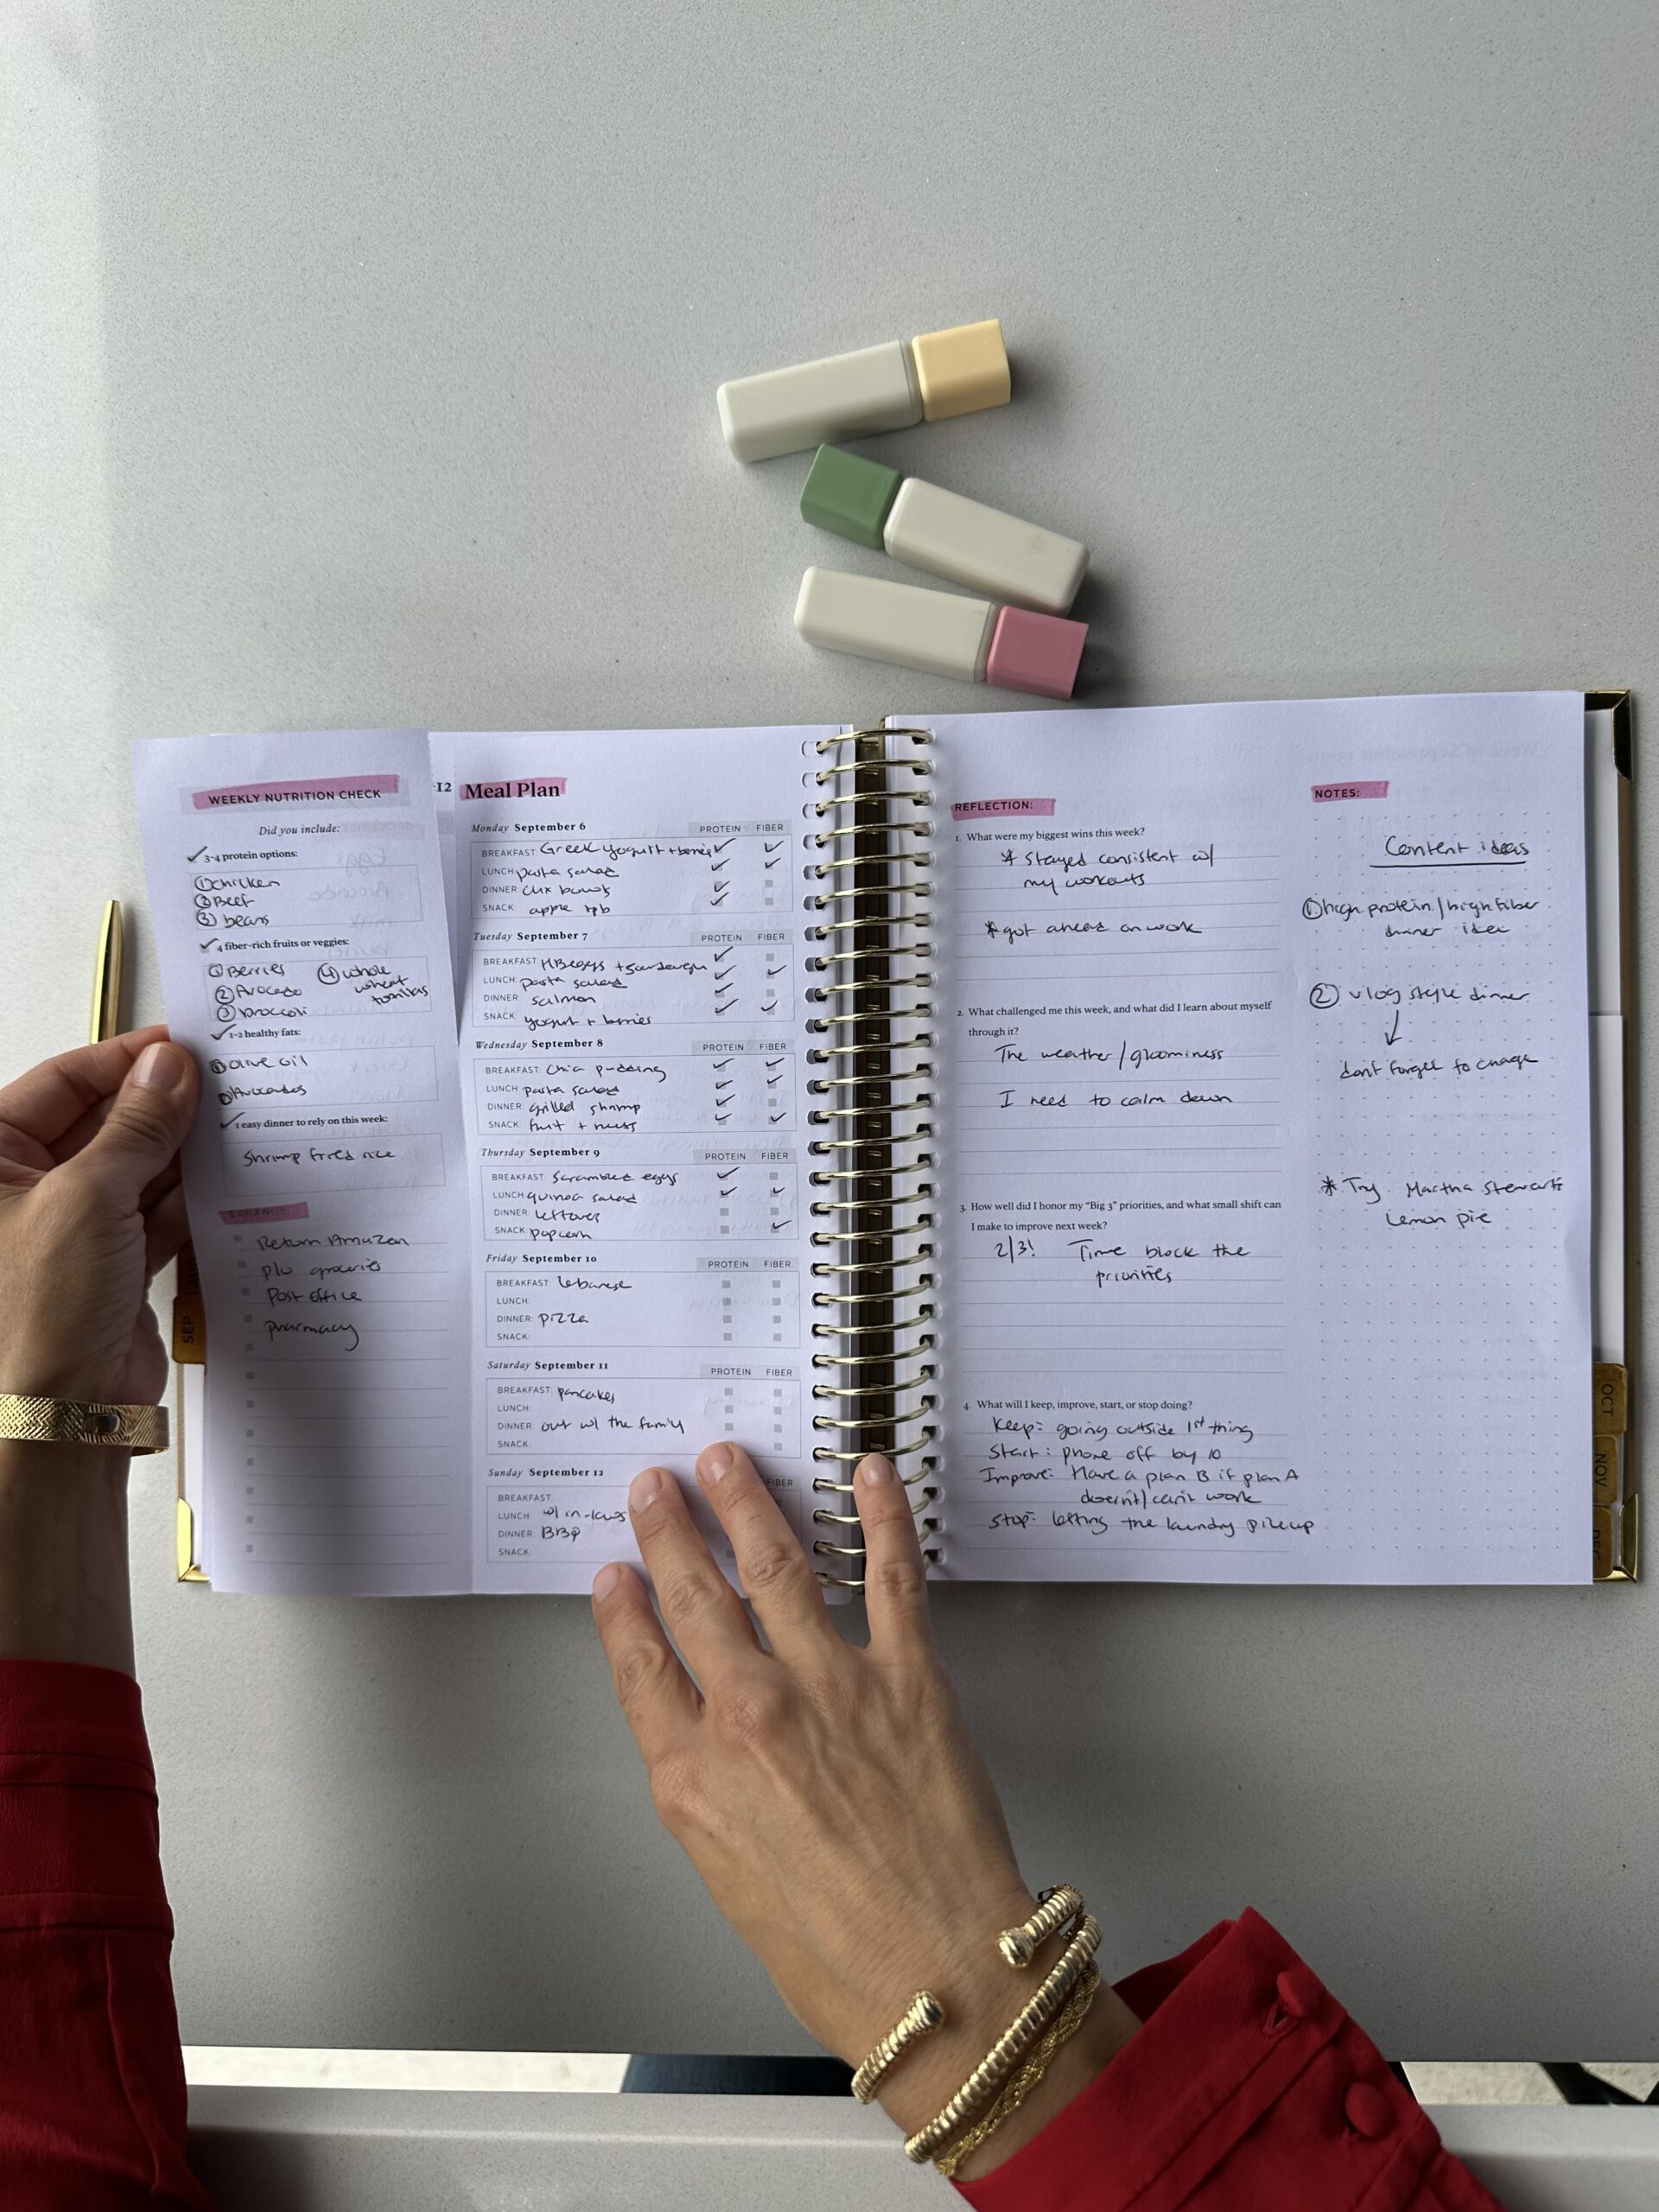 WEEKLY NUTRITION CHECK
Did you include:
3-4 protein options:
① chicken
② Beef
③ beans
4 fiber-rich fruits or veggies:
① Berries
② Avocado
③ broccoli
④ whole
wheat
tortillas
1-2 healthy fats:
① olive oil
② Avocados
1 easy dinner to rely on this week:
Shrimp fried rice
ERRANDS:
Return Amazon
p/u groceries
Post office
pharmacy
SEP
12
Meal Plan
Monday September 6
PROTEIN FIBER
BREAKFAST: Greek yogurt + berries
LUNCH: pasta salad
DINNER: chx bowls
SNACK: apple + pb
Tuesday September 7
PROTEIN FIBER
BREAKFAST: HB eggs + sourdough
LUNCH: pasta salad
DINNER: salmon
SNACK: yogurt + berries
Wednesday September 8
PROTEIN FIBER
BREAKFAST: Chia pudding
LUNCH: pasta salad
DINNER: grilled shrimp
SNACK: fruit + nuts
Thursday September 9
PROTEIN FIBER
BREAKFAST: Scrambled eggs
LUNCH: quinoa salad
DINNER: leftovers
SNACK: popcorn
Friday September 10
PROTEIN FIBER
BREAKFAST: lebanese
LUNCH:
DINNER: pizza
SNACK:
Saturday September 11
PROTEIN FIBER
BREAKFAST: pancakes
LUNCH:
DINNER: out w/ the family
SNACK:
Sunday September 12
FIBER
BREAKFAST:
LUNCH: w/ in-laws
DINNER: BBQ
SNACK:
REFLECTION:
1. What were my biggest wins this week?
* Stayed consistent w/
my workouts
* got ahead on work
2. What challenged me this week, and what did I learn about myself
through it?
The weather/gloominess
I need to calm down
3. How well did I honor my “Big 3” priorities, and what small shift can
I make to improve next week?
2/3! Time block the
priorities
4. What will I keep, improve, start, or stop doing?
Keep: going outside 1st thing
Start: phone off by 10
Improve: Have a plan B if plan A
doesn't/can't work
Stop: letting the laundry pile up
NOTES:
Content ideas
① high protein/high fiber
dinner idea
② vlog style dinner
don't forget to charge
* Try Martha Stewart's
Lemon pie
OCT
NOV
DEC